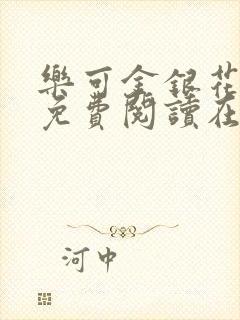 樂可金銀花
免費閱讀在
河中